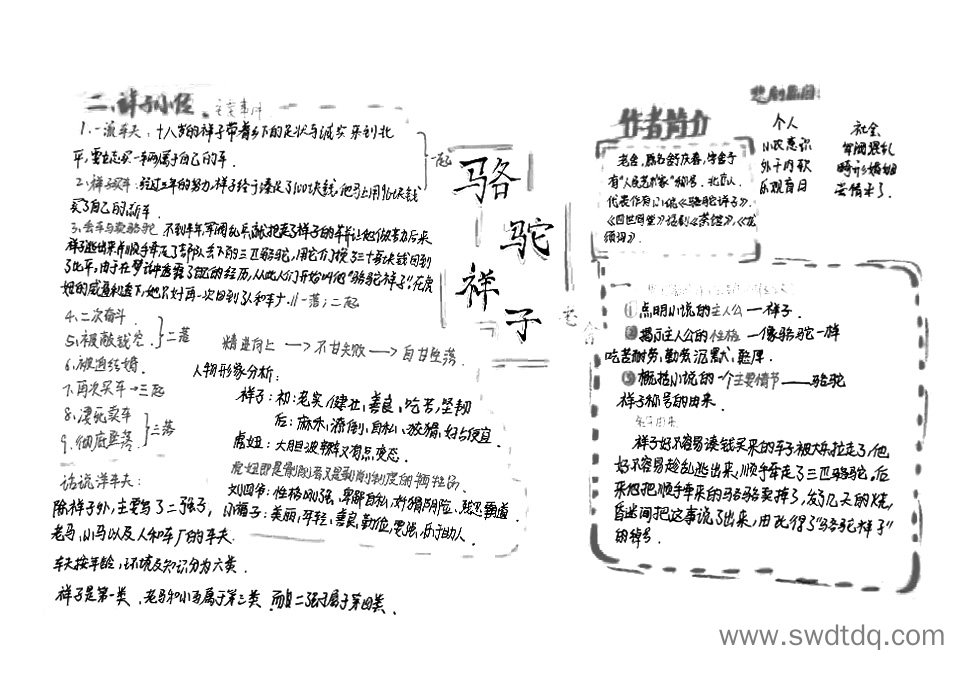 二、祥子小传、主要事件
1、一流车夫：十八岁的祥子带着乡下的足状与诚实来到北
平，要买一车辆属于自己的车．
一起
2、祥子奴车：经过三年的努力，祥子终于凑足了100块钱，他马上用96块钱
买了自己的新车．
3、丢车与卖骆驼 不到半年，军阀乱兵就把走了祥子的车并让他做苦力后来
祥子逃出来并顺手牵走了部队丢下的三匹骆驼，用它们换了三十多块钱回到
了北平，由于在梦话中透露了自己的经历，从此人们开始叫他“骆驼祥子”．在虎
妞的威逼利诱下，他只好再一次回到了人和车厂．// 一落；二起
4、二次奋斗．
5、被敲钱完．
二落
6、被迫结婚．
7、再次买车→三起
8、虎死卖车
9、彻底堕落．
三落
精进向上 → 不甘失败 → 自甘堕落．
人物形象分析：
祥子：初：老实，健壮，善良、吃苦，坚韧
后：麻木，潦倒，自私、狡猾，好占便宜．
虎妞：大胆泼辣，又有点变态．
虎妞即是剥削者又是剥削制度的牺牲品．
刘四爷：性格刚强，卑鄙自私，奸猾阴险、残忍霸道
小福子：美丽，年轻，善良，勤俭，要强，乐于助人．
话说洋车夫：
除祥子外，主要写了二强子，
老马，小马以及人和车厂的车夫．
车夫按年龄，环境及知识分为六类．
祥子是第一类、老马和小马属于第三类 而且二强子属于第四类．
骆
驼
祥
子
老舍
作者简介
老舍，原名舒庆春，字舍予
有“人民艺术家”称号．北京人．
代表作有小说《骆驼祥子》．
《四世同堂》话剧《茶馆》．《龙
须沟》．
悲剧原因：
个人
小农意识
外干内软
乐观盲目
社会
军阀混乱
畸形婚姻
①点明小说的主人公 — 祥子．
②揭示主人公的性格 — 像骆驼一样
吃苦耐劳，勤劳沉默，憨厚．
③概括小说的一个主要情节 —— 骆驼
祥子称号的由来．
祥子好不容易凑钱买来的车子被大兵拉走了，他
好不容易趁乱逃出来，顺手牵走了三匹骆驼。后
来他把顺手牵来的骆驼卖掉了，发了几天的烧，
昏迷间把这事说了出来，由此得了“骆驼祥子”
的绰号．
www.swdtdq.com